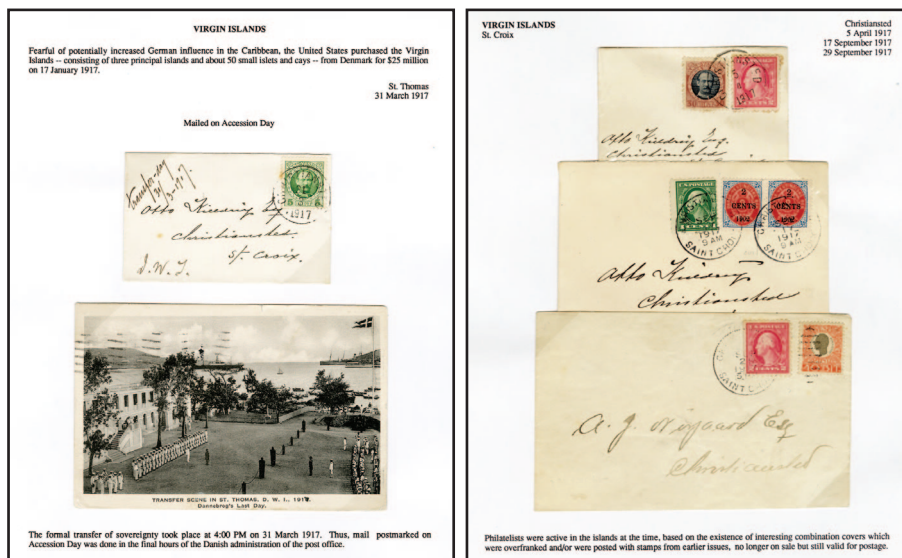 VIRGIN ISLANDS
Fearful of potentially increased German influence in the Caribbean, the United States purchased the Virgin
Islands -- consisting of three principal islands and about 50 small islets and cays -- from Denmark for $25 million
on 17 January 1917.
St. Thomas
31 March 1917
Mailed on Accession Day
Transfer-day
31/3-1917.
Otto Kiedrip Esq
Christiansted
St. Croix.
D. W. I.
1917
TRANSFER SCENE IN ST. THOMAS, D. W. I., 1917.
Dannebrog's Last Day.
The formal transfer of sovereignty took place at 4:00 PM on 31 March 1917. Thus, mail postmarked on
Accession Day was done in the final hours of the Danish administration of the post office.
VIRGIN ISLANDS
St. Croix
Christiansted
5 April 1917
17 September 1917
29 September 1917
Otto Kiedrip Esq.
Christiansted
U.S. POSTAGE
2 CENTS 1902
2 CENTS 1902
1917
9 AM
SAINT CROIX
1917
9 AM
SAINT CROIX
Otto Kiedrip
Christiansted
U.S. POSTAGE
2 CENTS 2
SAINT CROIX
A. J. Esq
Christiansted
Philatelists were active in the islands at the time, based on the existence of interesting combination covers which
were overfranked and/or were posted with stamps from earlier issues, no longer on sale but still valid for postage.